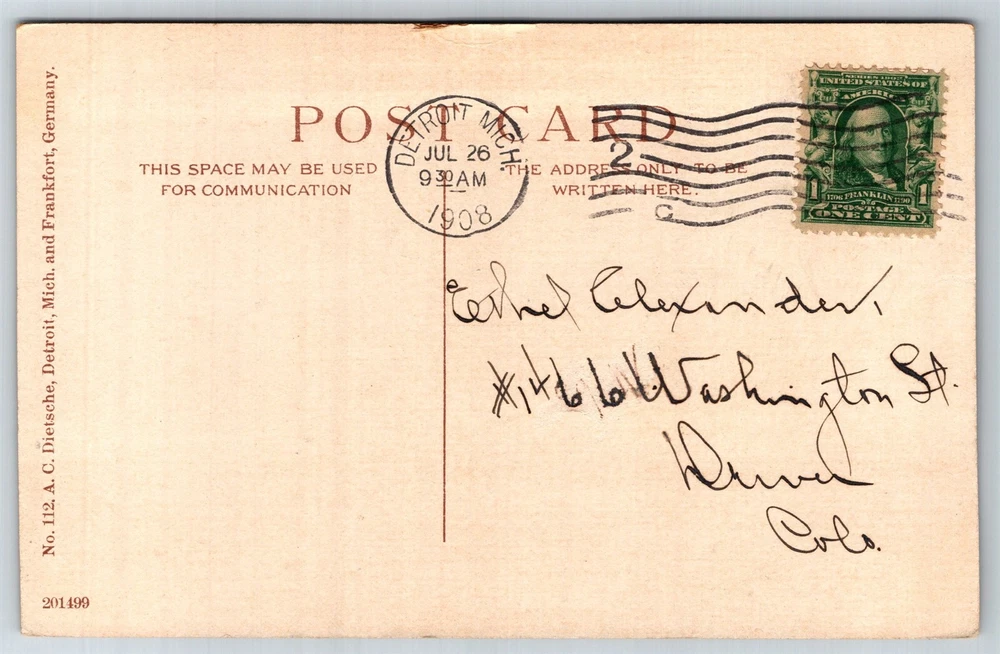 No. 112. A. C. Dietsche, Detroit, Mich. and Frankfort, Germany.
201499
POST CARD
THIS SPACE MAY BE USED
FOR COMMUNICATION
THE ADDRESS ONLY TO BE
WRITTEN HERE.
DETROIT MICH.
JUL 26
9 30 AM
1908
2
C
SERIES 1902
UNITED STATES OF
AMERICA
1706 FRANKLIN 1790
1 POSTAGE 1
ONE CENT
Ethel Alexander,
#1466 Washington St.
Denver
Colo.